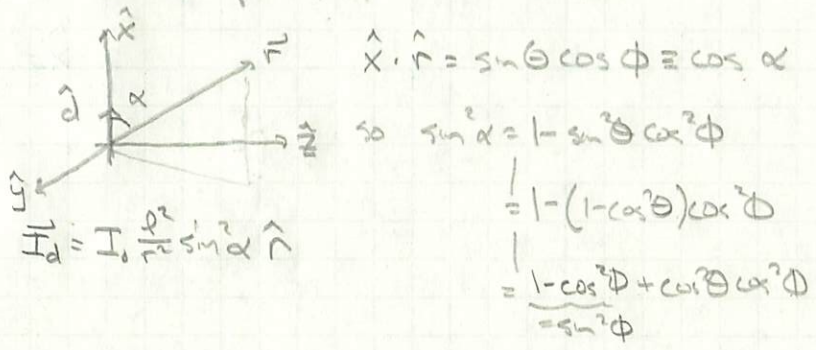 x̂
r⃗
d̂ α
ẑ
ŷ
I⃗_d = I₀ ℓ²/r² sin²α r̂
x̂ · r̂ = sinθ cosφ ≡ cos α
so sin²α = 1 - sin²θ cos²φ
= 1 - (1 - cos²θ) cos²φ
= 1 - cos²φ + cos²θ cos²φ
= sin²φ